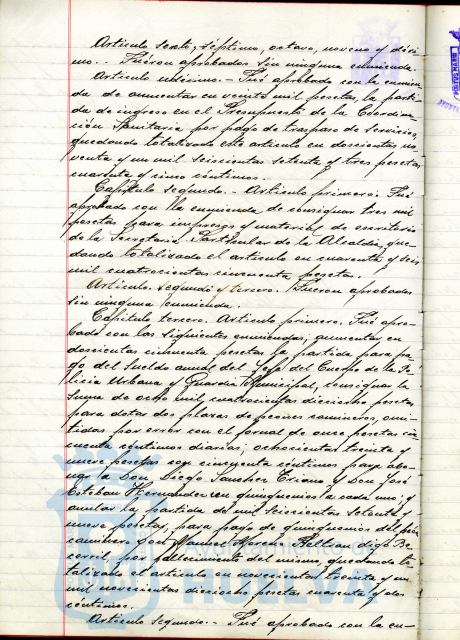 Artículo sexto, séptimo, octavo, noveno y déci-
mo.- Fueron aprobados sin ninguna enmienda.
Artículo undécimo.- Fué aprobado con la enmien-
da de aumentar en veinte mil pesetas, la parti-
da de ingreso en el Presupuesto de la Coordina-
ción Sanitaria por pago de traspaso de servicios,
quedando totalizado este artículo en doscientas no-
venta y un mil seiscientas setenta y tres pesetas
cuarenta y cinco céntimos.
Capítulo segundo.- Artículo primero: Fué
aprobado con la enmienda de consignar tres mil
pesetas para impresos y material de escritorio
de la Secretaría Particular de la Alcaldía, que-
dando totalizado el artículo en cuarenta y seis
mil cuatrocientas cincuenta pesetas.
Artículo segundo y tercero. Fueron aprobados
sin ninguna enmienda.
Capítulo tercero. Artículo primero. Fué apro-
bado con las siguientes enmiendas; aumentar en
doscientas cincuenta pesetas la partida para pa-
go del sueldo anual del Jefe del Cuerpo de la Po-
licía Urbana y Guardia Municipal, consignar la
suma de ocho mil cuatrocientas dieciocho pesetas
para dotar dos plazas de peones camineros, omi-
tidas por error con el jornal de once pesetas cin-
cuenta céntimos diarias; ochocientas treinta y
nueve pesetas con cincuenta céntimos para abo-
nar a Don Diego Sanchez Triano y Don José
Esteban Hernandez en quinquenios a cada uno; y
anular la partida de mil seiscientas setenta y
nueve pesetas, para pago de quinquenios del peón
caminero Don Manuel Moreno Beltran digo Be-
cerril, por fallecimiento del mismo, quedando to-
talizado el artículo en novecientas treinta y un
mil novecientas dieciocho pesetas cuarenta y dos
céntimos.
Artículo segundo.- Fué aprobado con la en-
Ayuntamiento de
HUELVA